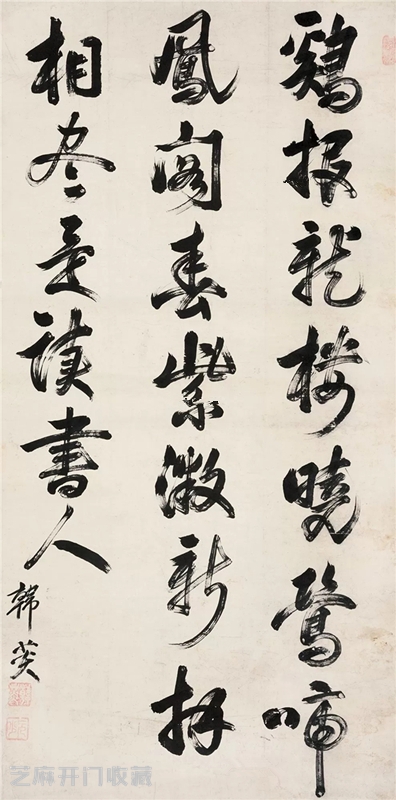 鷄報龍樓曉鶯啼
鳳閣春紫微新拜
相尽是讀書人
韓菼
芝麻开门收藏